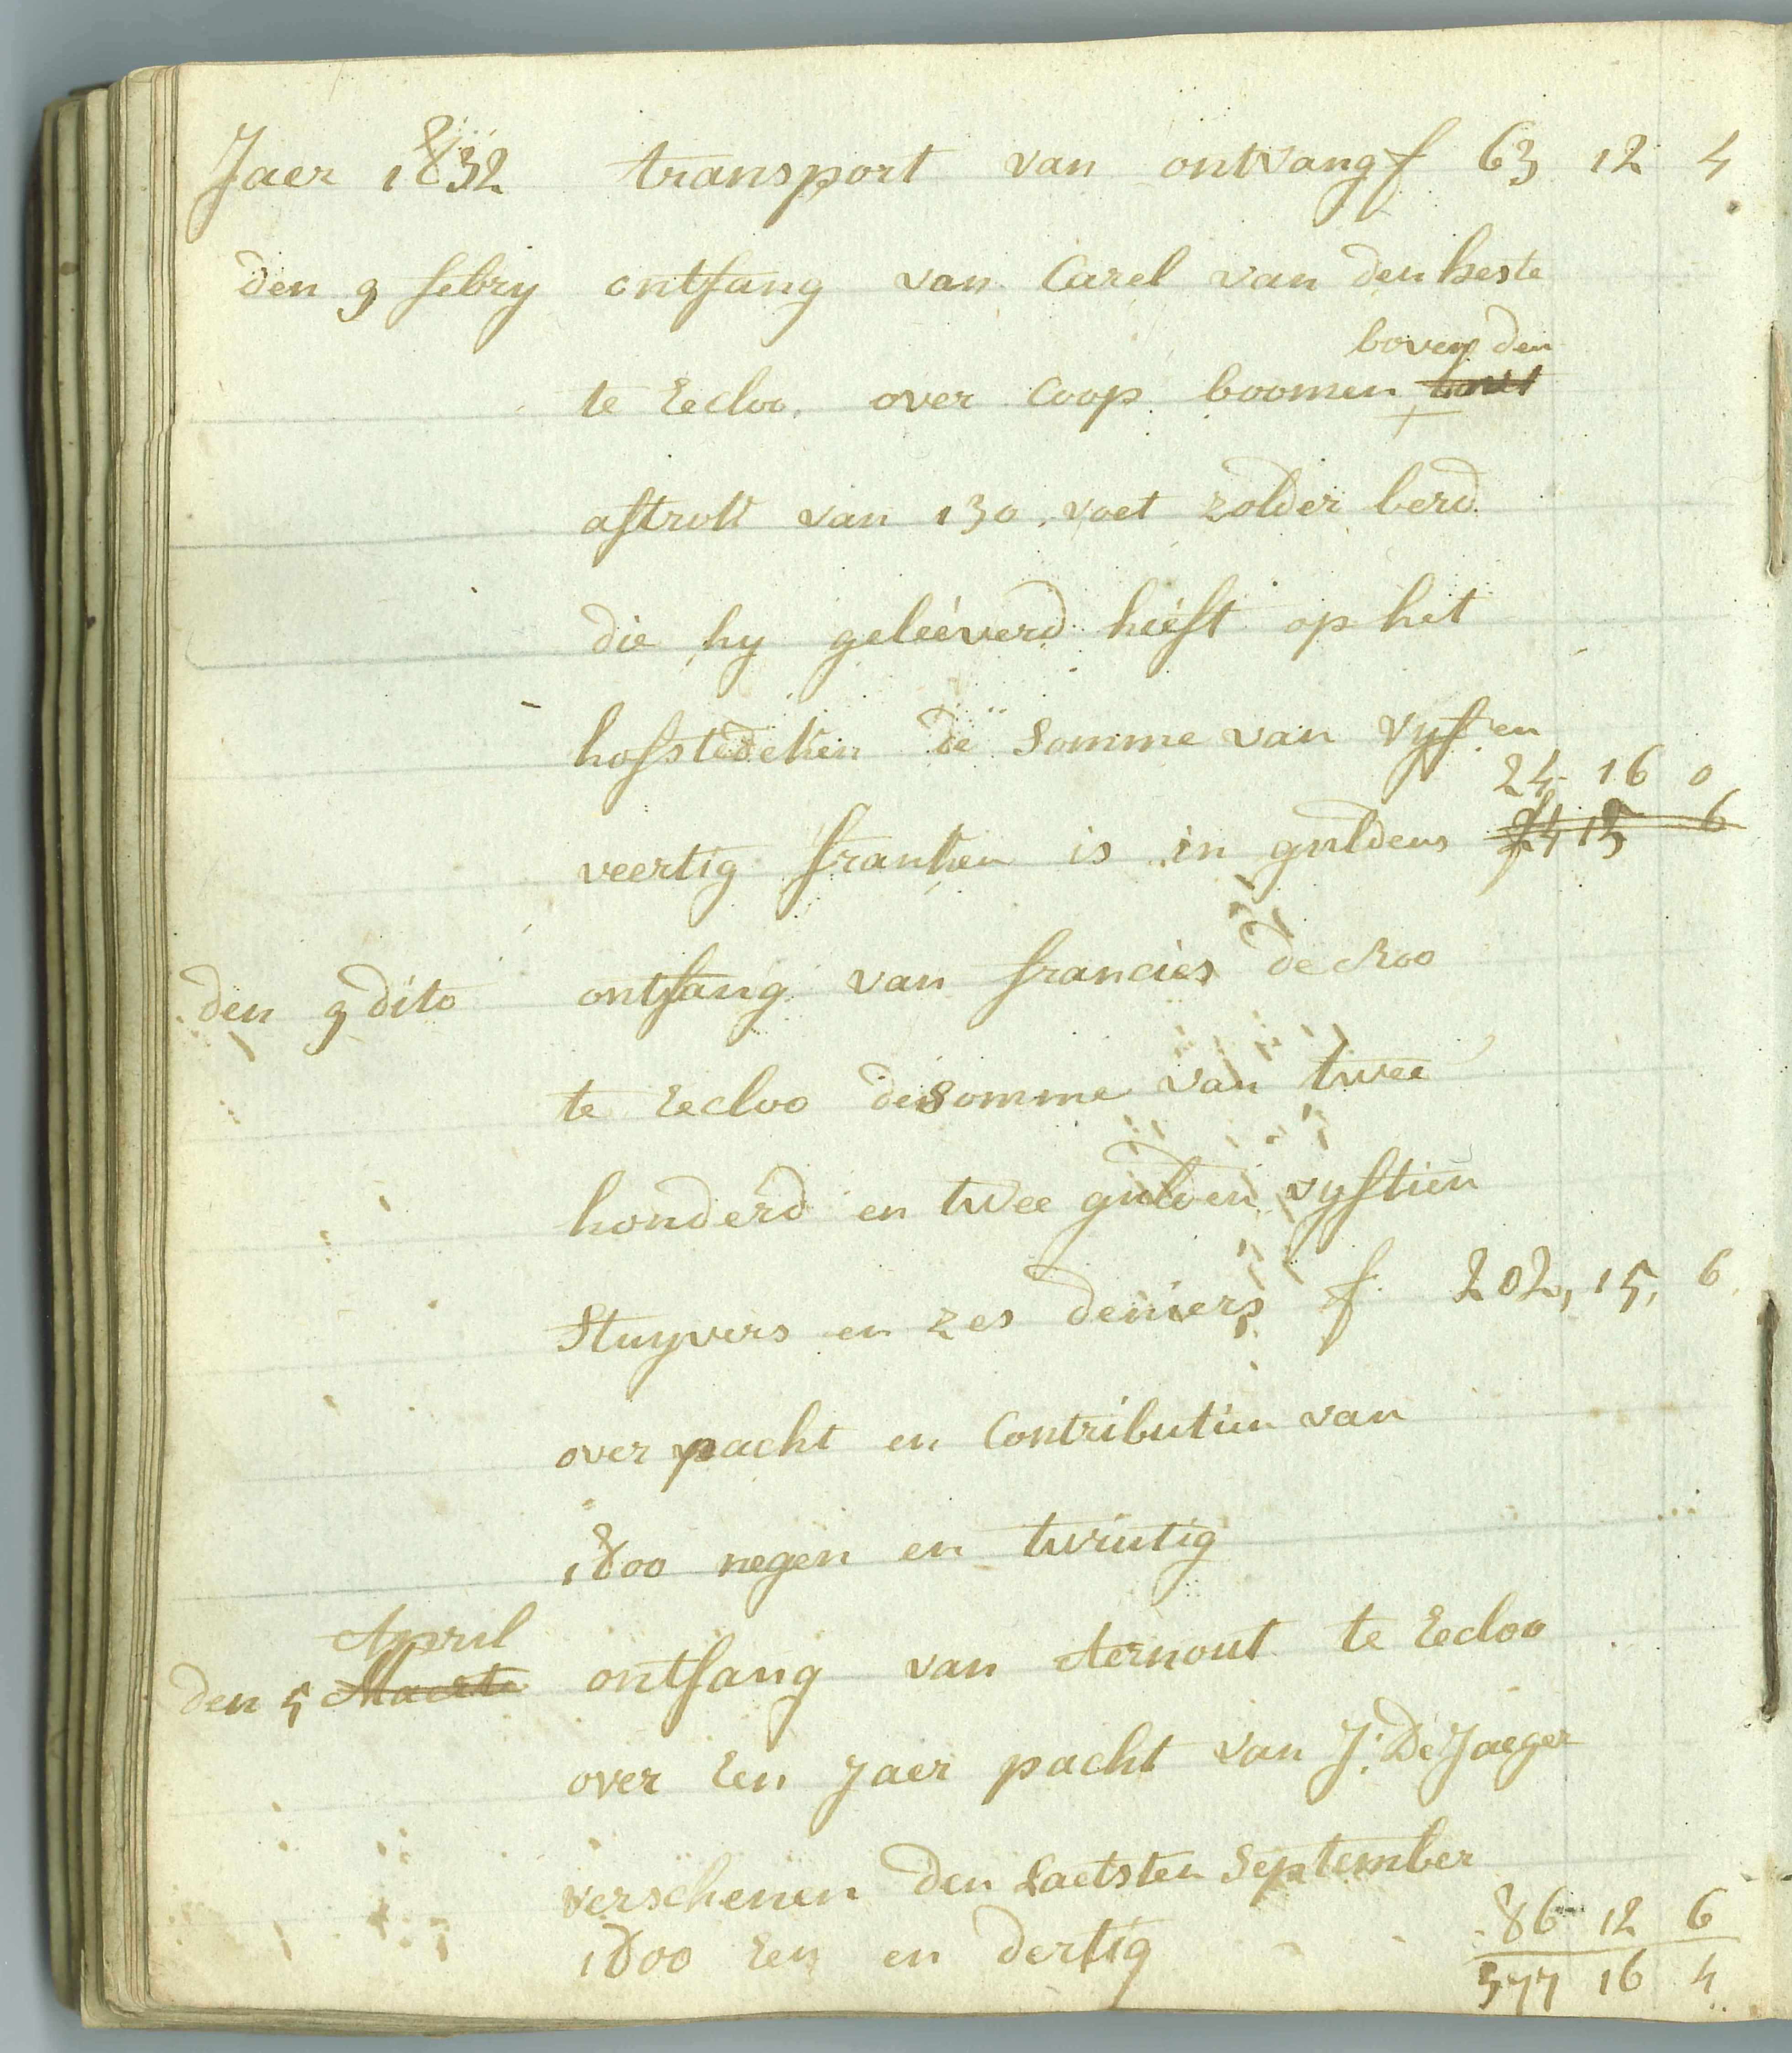 Jaer 1832 transport van ontvang f 63 12 4
den 9 febry ontfang van Carel van den heste
boven den
te Eecloo. over coop boomen
aftrok van 130 voet zolder berd
die hy geleéverd heéft op het
hofstedeken de somme van vyf en
24 16 0
veertig franken is in guldens 24 15 6
den 9 dito ontfang van francies de croo
te Eecloo de somme van twee
honderd en twee gulden vyftien
Stuyvers en zes deniers f 202, 15, 6
over pacht en Contributien van
1800 negen en twintig
April
den 5 Maerte ontfang van Aernout te Eecloo
over een Jaer pacht van J: De Jaeger
verschenen den Laetsten September
86 12 6
1800 een en dertig
377 16 4